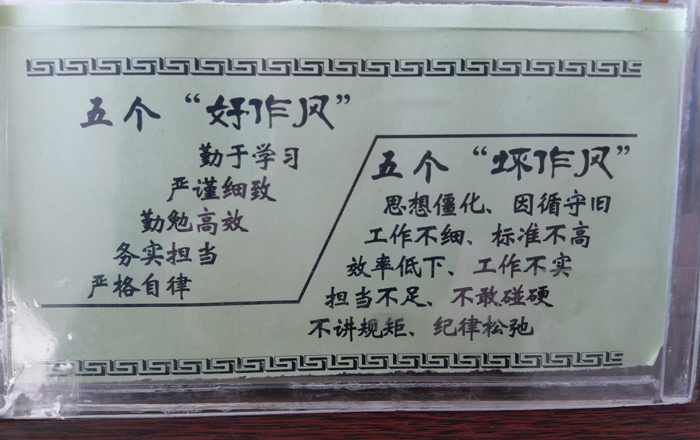 五个“好作风”
勤于学习
严谨细致
勤勉高效
务实担当
严格自律
五个“坏作风”
思想僵化、因循守旧
工作不细、标准不高
效率低下、工作不实
担当不足、不敢碰硬
不讲规矩、纪律松弛